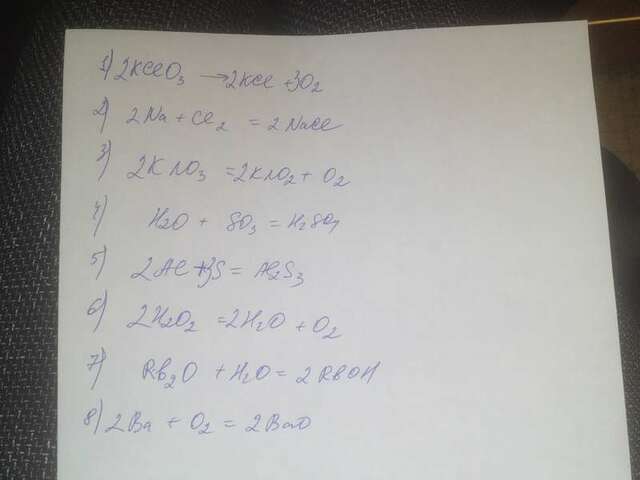 1) 2KClO3 → 2KCl + 3O2
2) 2Na + Cl2 = 2NaCl
3) 2KNO3 = 2KNO2 + O2
4) H2O + SO3 = H2SO4
5) 2Al + 3S = Al2S3
6) 2H2O2 = 2H2O + O2
7) Rb2O + H2O = 2RbOH
8) 2Ba + O2 = 2BaO